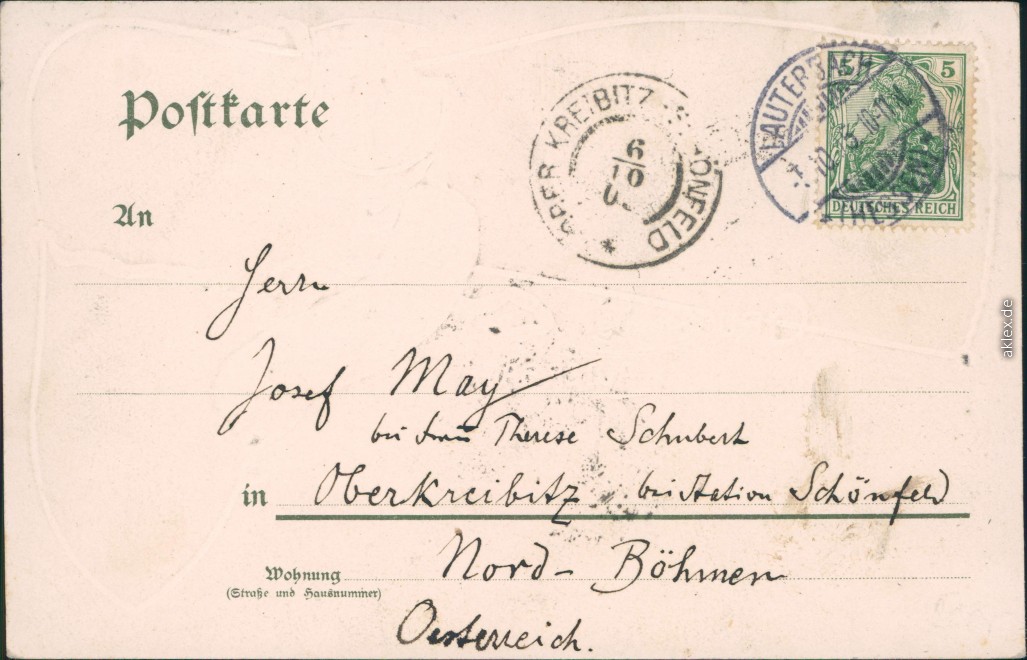 Postkarte
5 5
DEUTSCHES REICH
LAUTERBACH
5. 10-11
KREIBITZ SCHÖNFELD
6
10
An
Herrn
Josef May
bei Frau Therese Schubert
in Oberkreibitz bei Station Schönfeld
Nord-Böhmen
Wohnung
(Straße und Hausnummer)
Oesterreich.
aklex.de